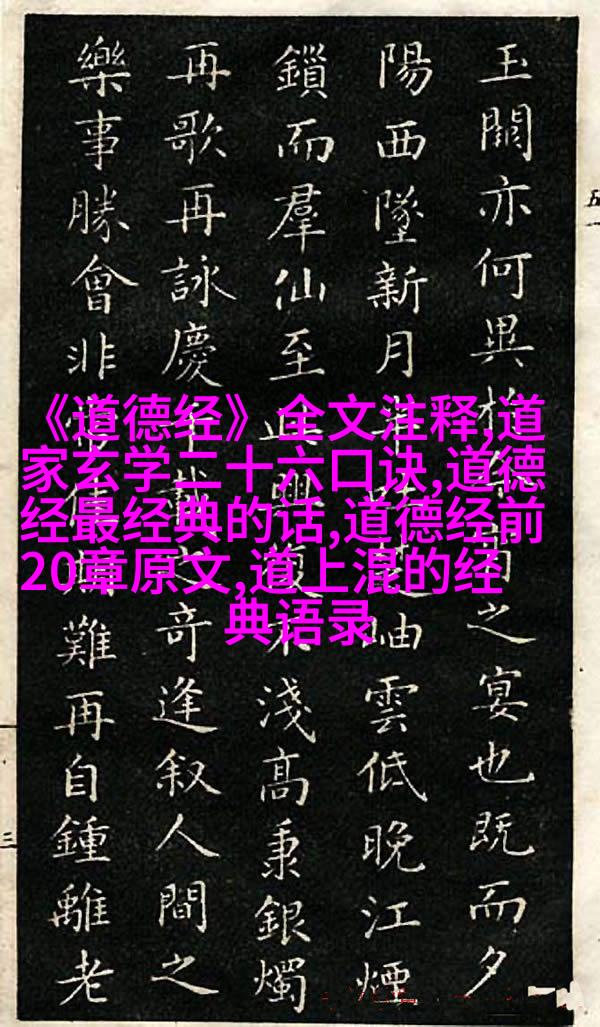 《道德经》全文注释,道
家玄学二十六口诀,道德
经最经典的话,道德经前
20章原文,道上混的经
典语录
玉闕亦何異之宴也既而夕
陽西墜新月岫雲低晚江煙
鎖而羣仙至此興復不淺高秉銀燭
再歌再詠慶千載之奇逢叙人間之
樂事勝會非難再自鍾離老
五一
三